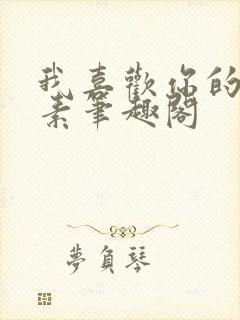 我喜歡你的
素筆趣閣
夢負琴